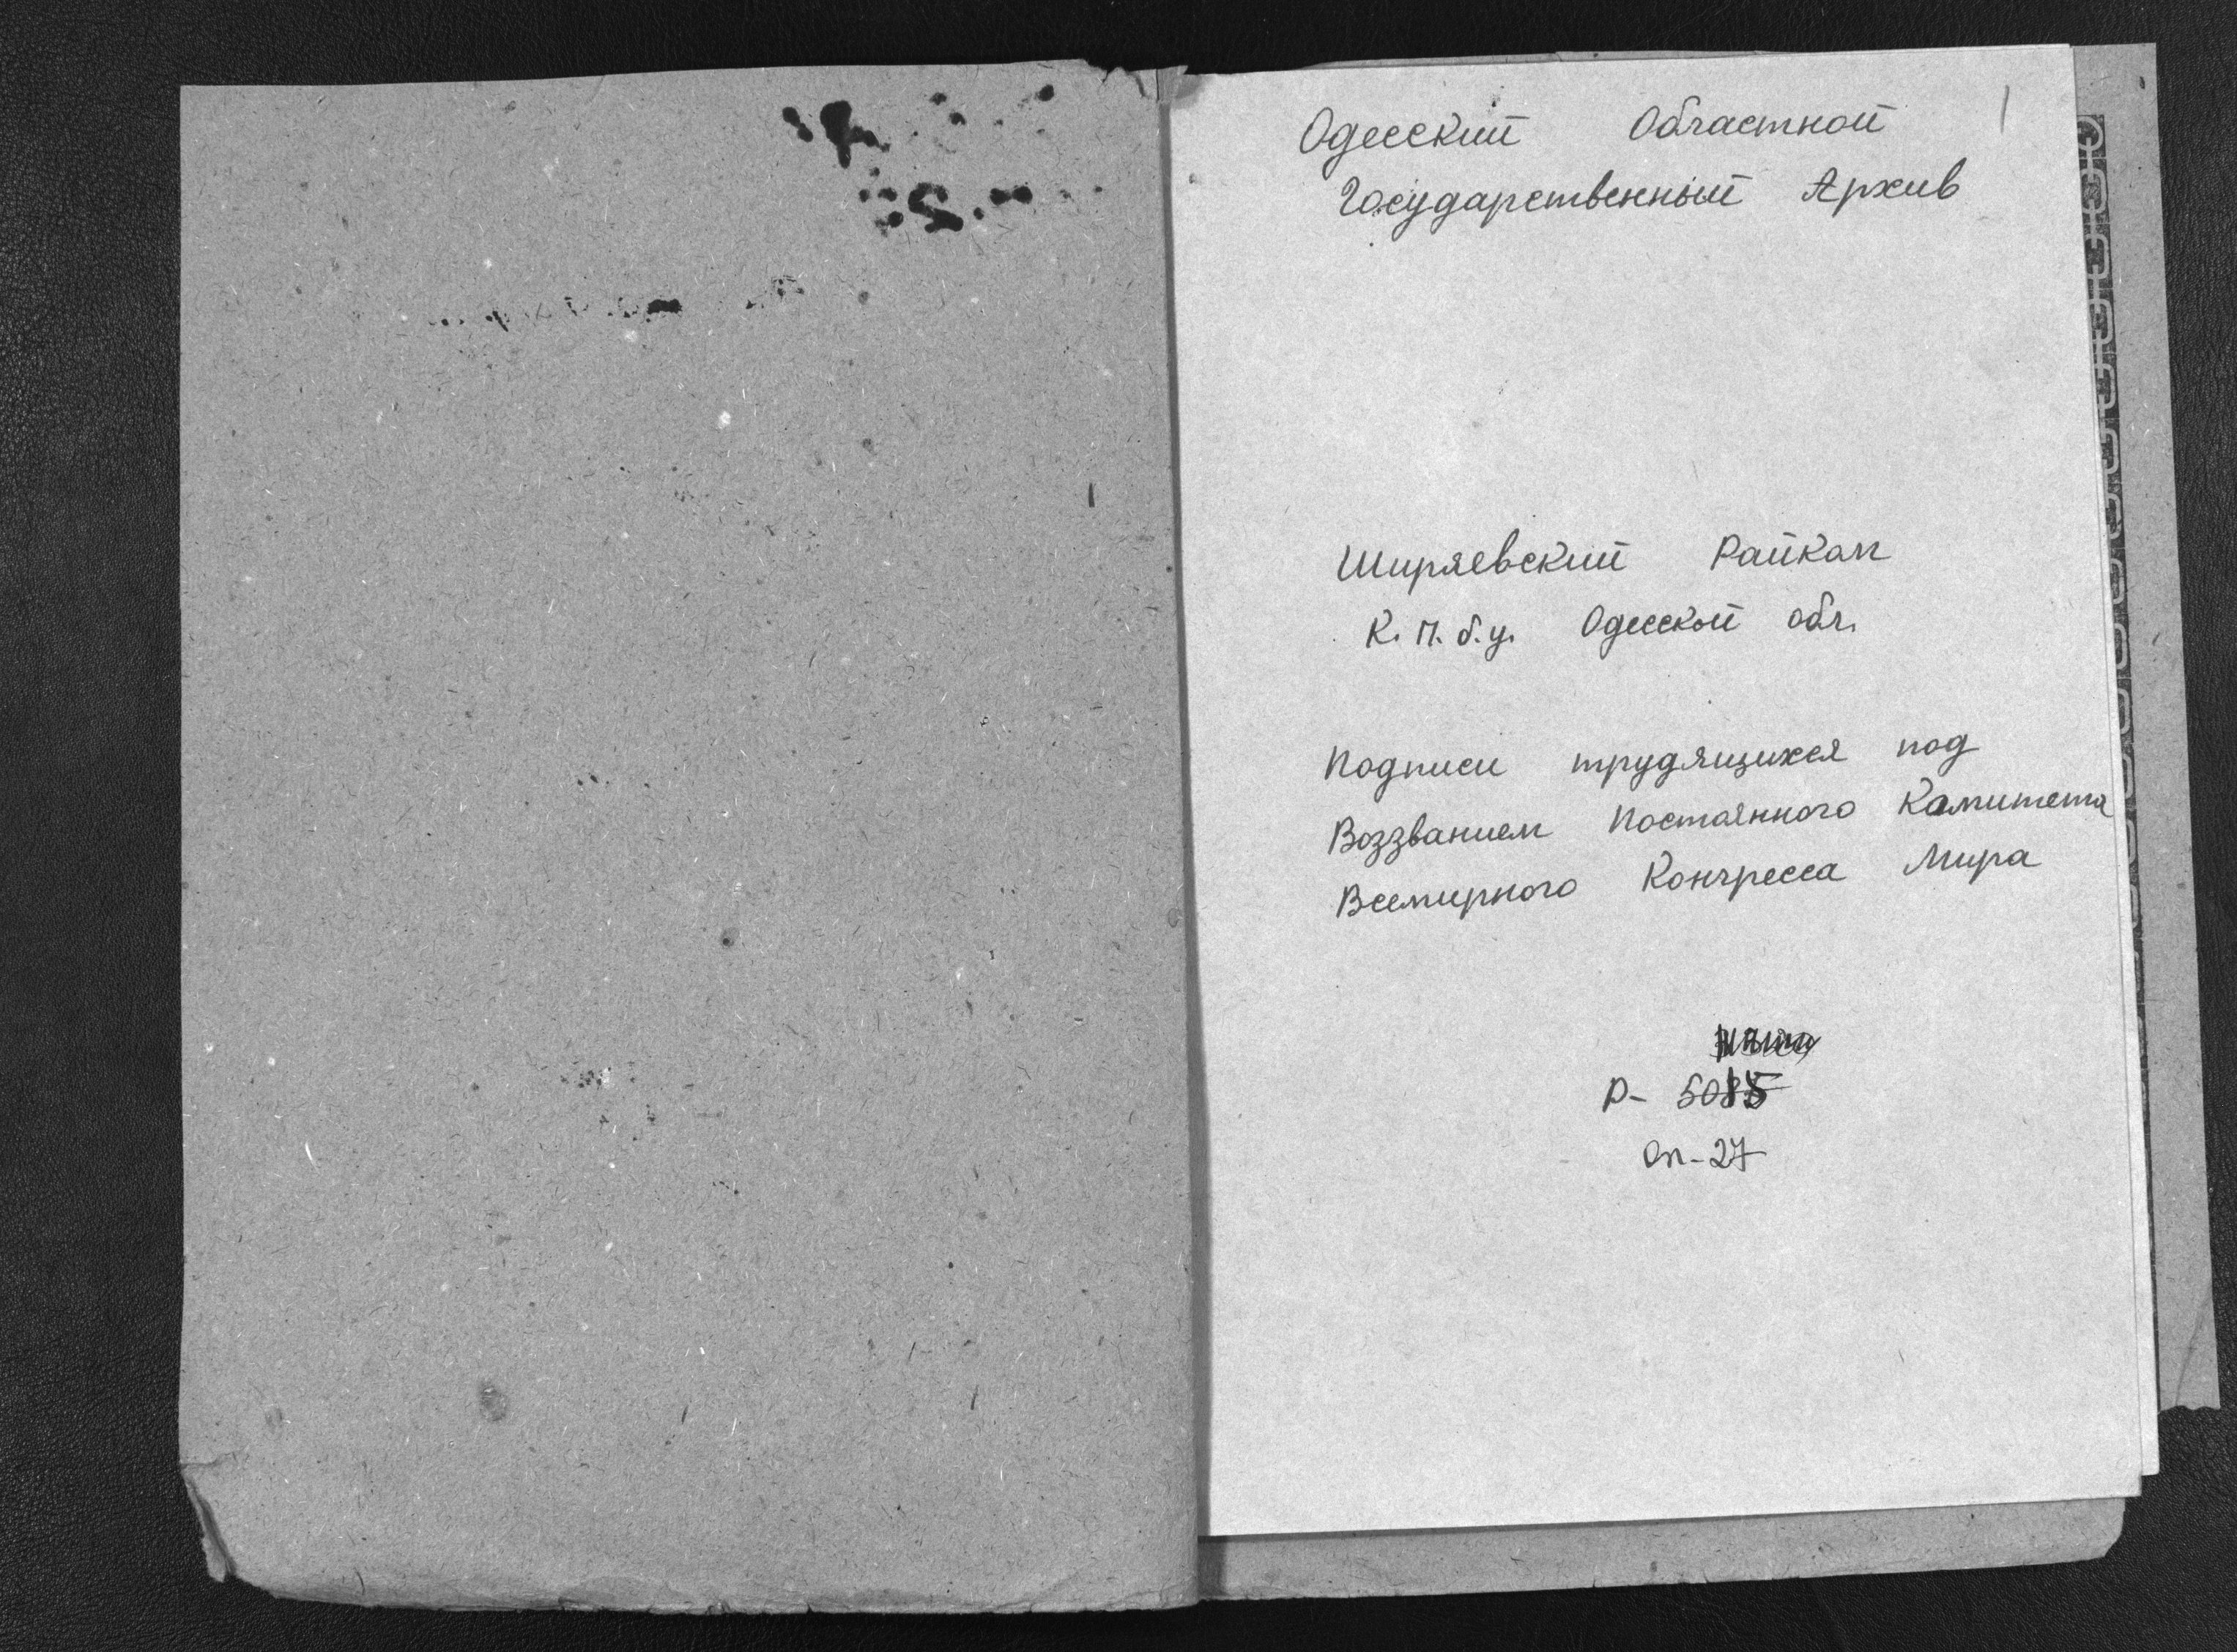 1
Одесский Областной
Государственный Архив
Ширяевский Райком
К.п.б.у. Одесской обл.
Подписи трудящихся под
Воззванием Постоянного Комитета
Всемирного Конгресса Мира
Р-
Оп-27